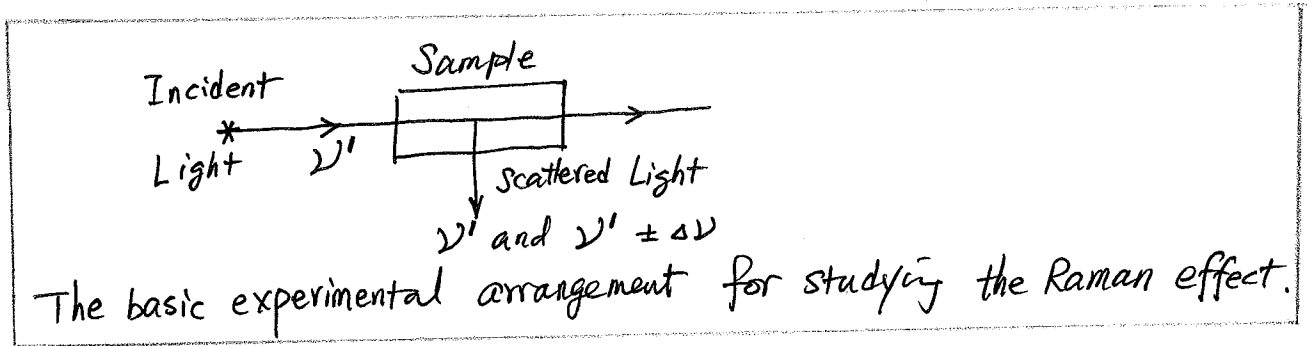 Sample
Incident
Light
ν'
Scattered Light
ν' and ν' ± Δν
The basic experimental arrangement for studying the Raman effect.